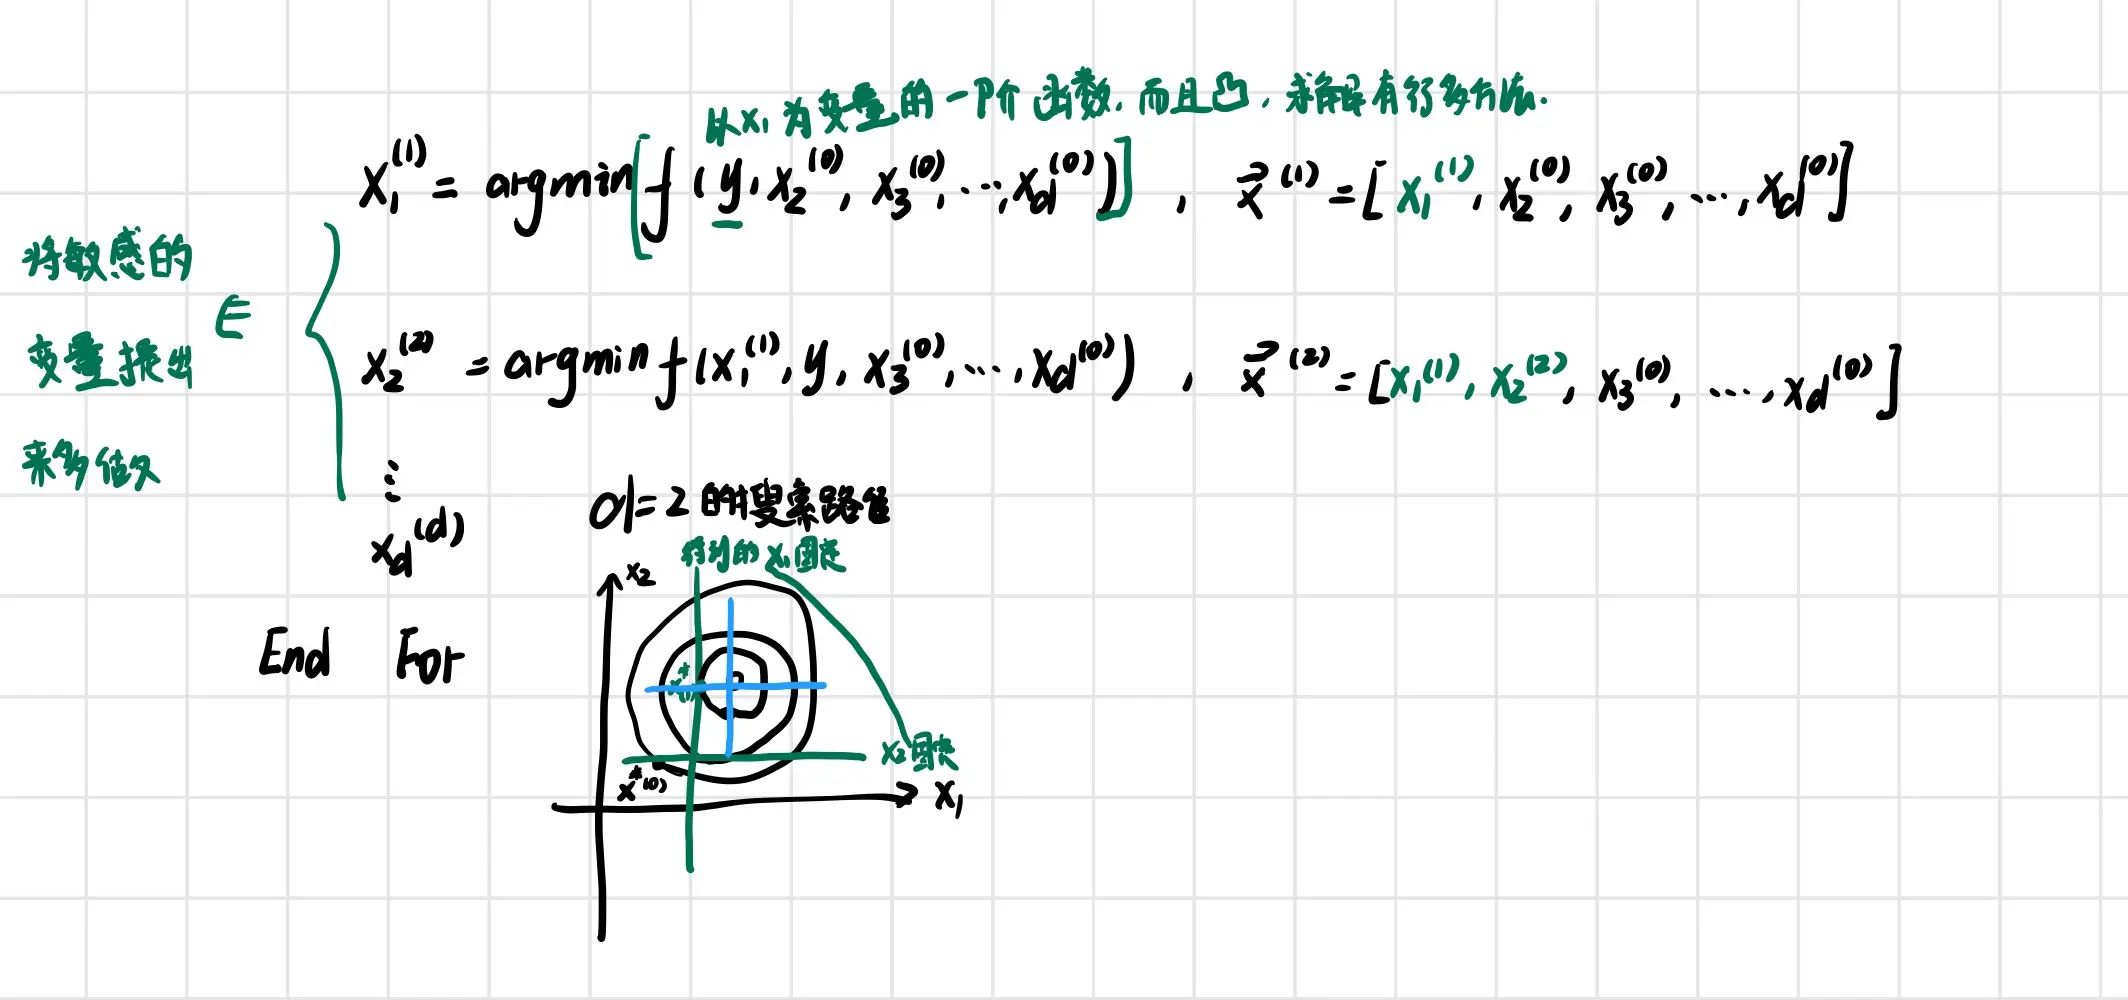 以x₁为变量的一阶函数,而且凸,求解有很多方法.
x₁⁽¹⁾ = argmin[f(y, x₂⁽⁰⁾, x₃⁽⁰⁾, ..., x_d⁽⁰⁾)] , x⃗⁽¹⁾ = [x₁⁽¹⁾, x₂⁽⁰⁾, x₃⁽⁰⁾, ..., x_d⁽⁰⁾]
将敏感的
变量提出
来多做又
∈
x₂⁽²⁾ = argmin f(x₁⁽¹⁾, y, x₃⁽⁰⁾, ..., x_d⁽⁰⁾) , x⃗⁽²⁾ = [x₁⁽¹⁾, x₂⁽²⁾, x₃⁽⁰⁾, ..., x_d⁽⁰⁾]
⋮
x_d⁽ᵈ⁾
End For
d=2的搜索路径
得到的x₁固定
x₂
x₂固定
x*⁽⁰⁾
x₁